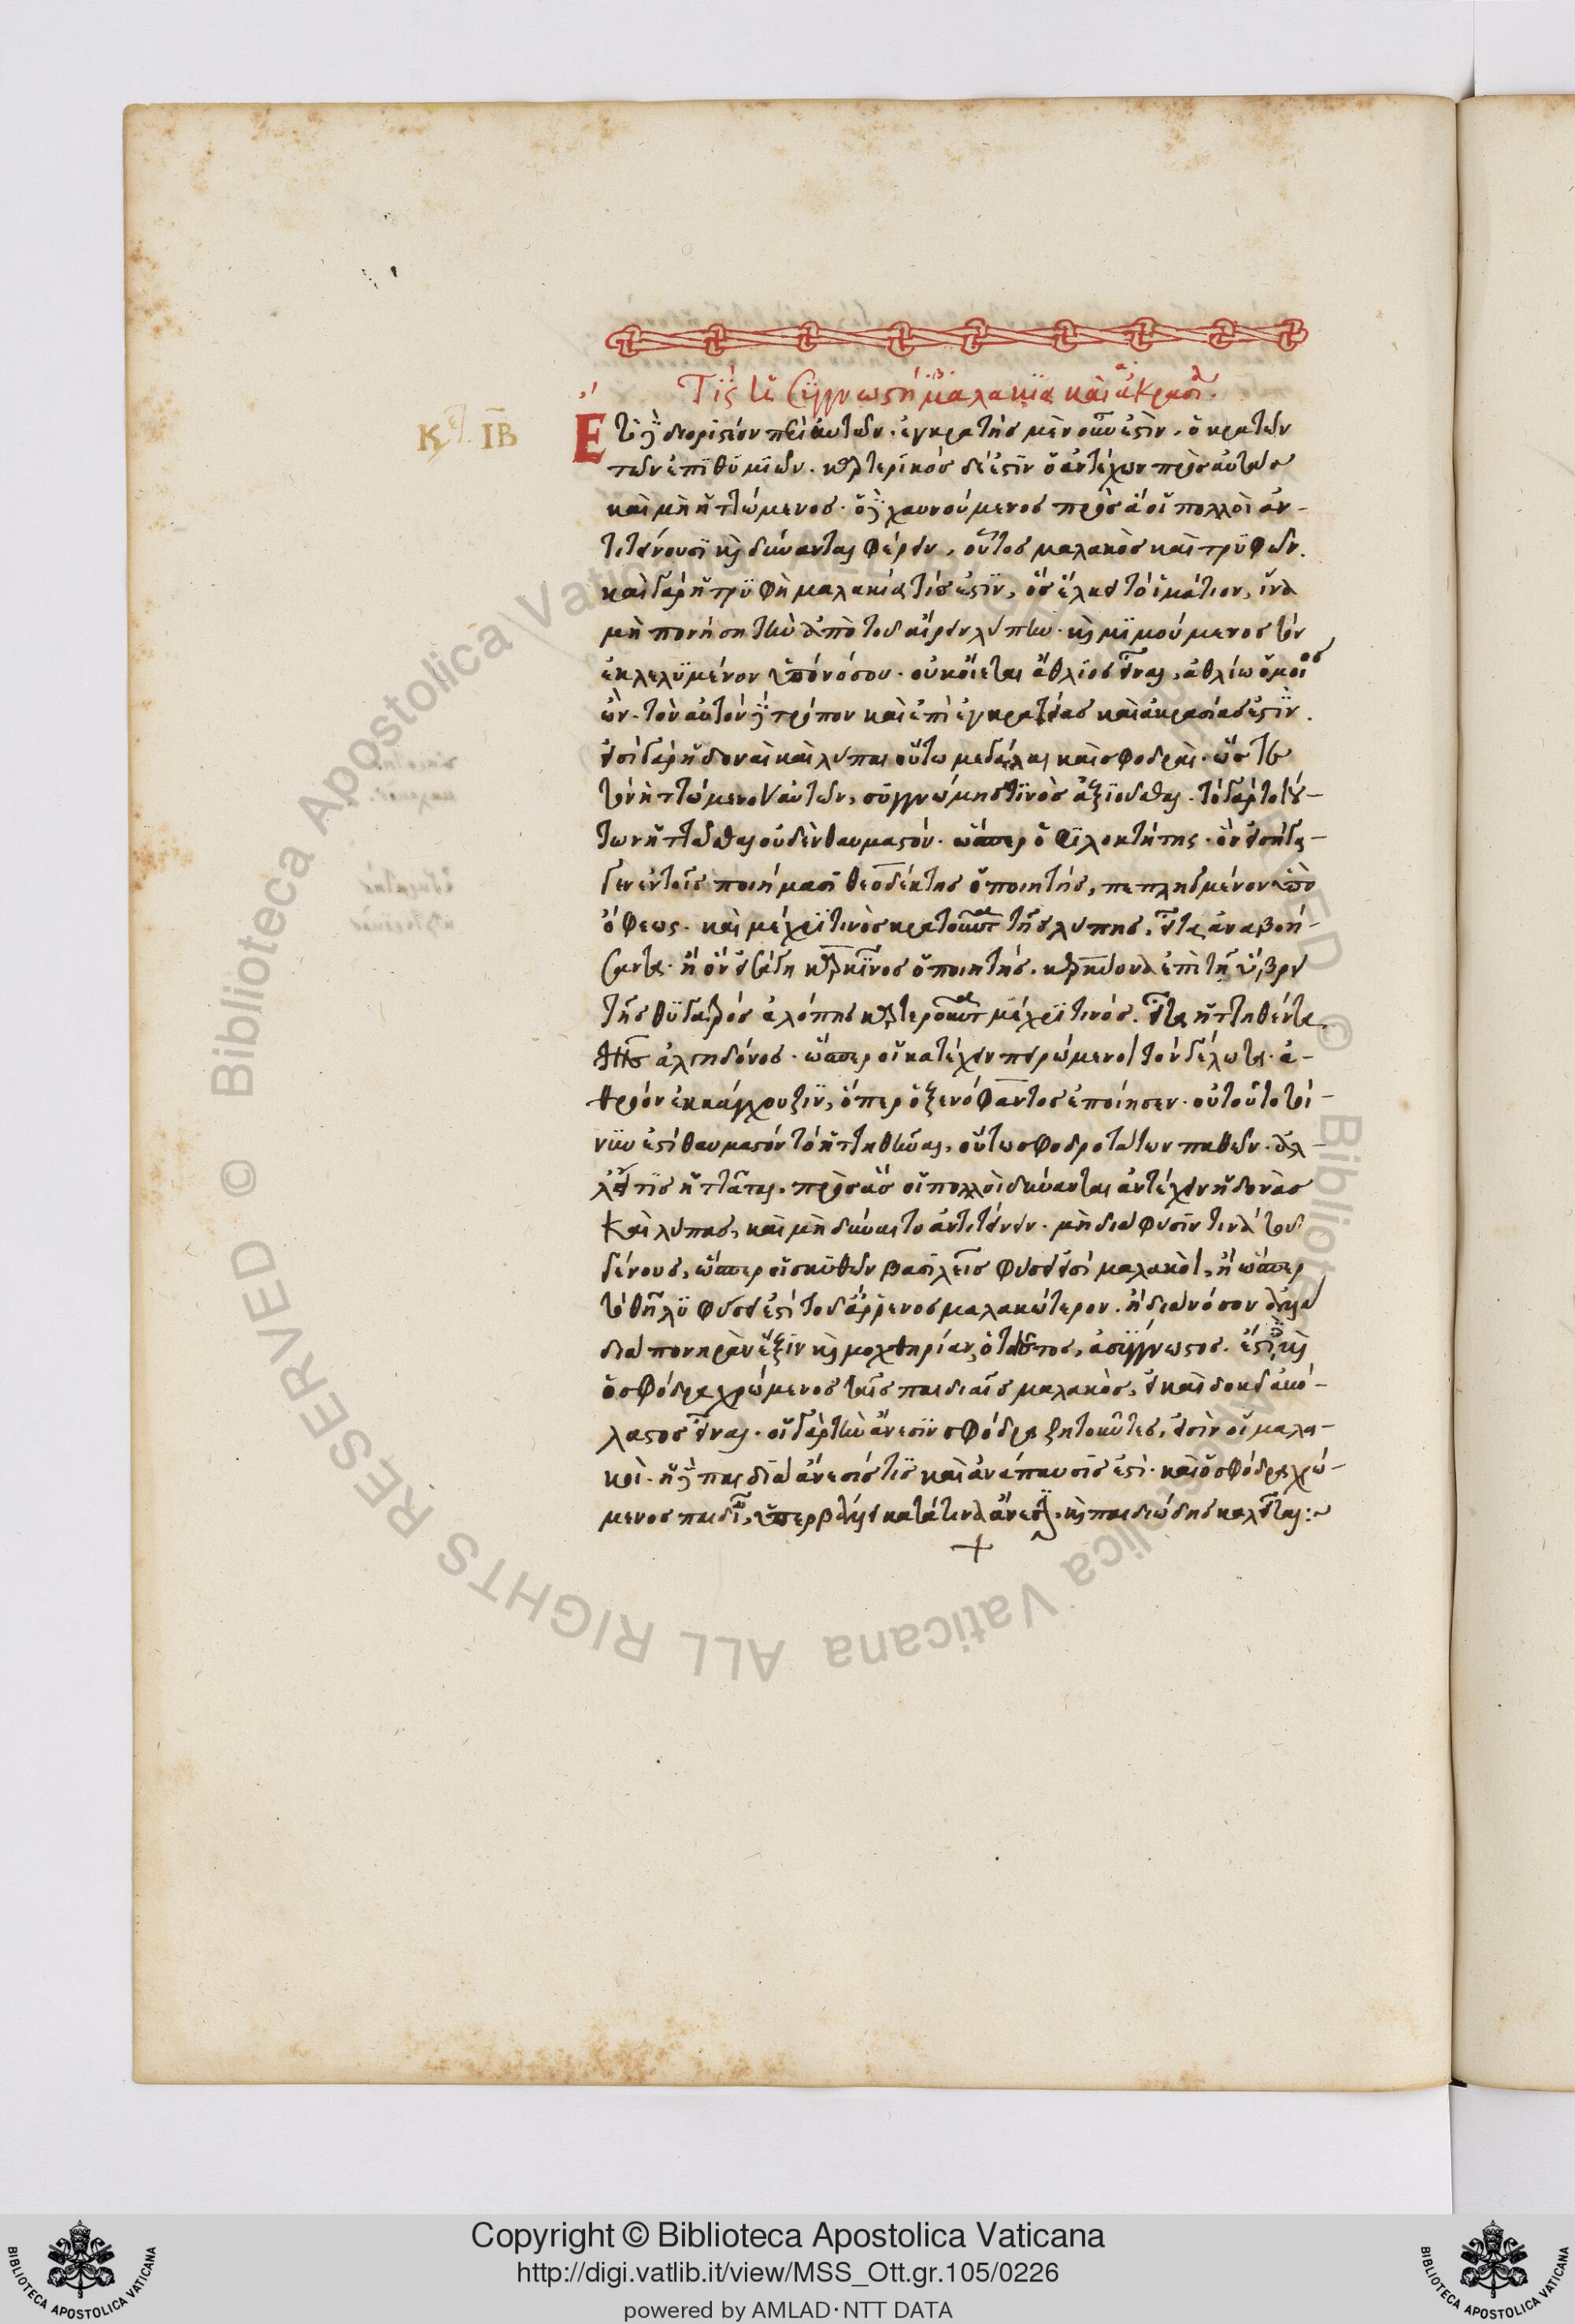 Τίς ἡ συγγνωστὴ μαλακία καὶ ἀκρασία.
Κεφ. ΙΒ
Ἔτι δὲ διοριστέον περὶ αὐτῶν. ἐγκρατὴς μὲν οὖν ἐστὶν, ὁ κρατῶν
τῶν ἐπιθυμιῶν. καρτερικὸς δέ ἐστιν ὁ ἀντέχων πρὸς αὐτὰς
καὶ μὴ ἡττώμενος. ὁ δὲ χαυνούμενος πρὸς ἃ οἱ πολλοὶ ἀν-
τιτείνουσι καὶ δύνανται φέρειν, οὗτος μαλακὸς καὶ τρυφῶν.
καὶ γὰρ ἡ τρυφὴ μαλακία τίς ἐστιν, ὃς ἕλκει τὸ ἱμάτιον, ἵνα
μὴ πονήσῃ τὴν ἀπὸ τοῦ αἴρειν λύπην. καὶ μιμούμενος τὸν
ἐκλελυμένον ὑπὸ νόσου. οὐκ οἴεται ἄθλιος εἶναι, ἀθλίῳ ὅμοιος
ὤν. τὸν αὐτὸν δὲ τρόπον καὶ ἐπὶ ἐγκρατείας καὶ ἀκρασίας ἐστίν.
εἰσὶ γὰρ ἡδοναὶ καὶ λύπαι οὕτω μεγάλαι καὶ σφοδραὶ. ὥστε
τὸν ἡττώμενον αὐτῶν, συγγνώμης τινὸς ἀξιοῦσθαι. τὸ γὰρ τού-
των ἡττᾶσθαι οὐδὲν θαυμαστόν. ὥσπερ ὁ Φιλοκτήτης. ὃν εἰσήγα-
γεν ἐν τοῖς ποιήμασι Θεοδέκτης ὁ ποιητής, πεπληγμένον ὑπὸ
ὄφεως. καὶ μέχρι τινὸς κρατοῦντα τῆς λύπης, εἶτα ἀναβοή-
σαντα. ἢ ὃν εἰσάγει Καρκῖνος ὁ ποιητής. Κερκύονα ἐπὶ τῇ ὕβρει
τῆς θυγατρός ἀλόπης καρτεροῦντα μέχρι τινός. εἶτα ἡττηθέντα
τῆς ἀλγηδόνος. ὥσπερ οἱ κατέχειν πειρώμενοι τὸν γέλωτα. ἀ-
θρόον ἐκκαγχάζουσιν, ὅπερ ὁ ξενόφαντος ἐποίησεν. οὐ τοῦτο τοί-
νυν ἐστὶ θαυμαστόν τὸ ἡττηθῆναι, οὕτω σφοδροτάτων παθῶν. ἀλ-
λ' εἴ τις ἡττᾶται, πρὸς ἃς οἱ πολλοὶ δύνανται ἀντέχειν ἡδονὰς
καὶ λύπας, καὶ μὴ δύναιτο ἀντιτείνειν. μὴ διὰ φύσιν τινὰ τοῦ
γένους, ὥσπερ οἱ σκυθῶν βασιλεῖς φύσει εἰσὶ μαλακοὶ, ἢ ὥσπερ
τὸ θῆλυ φύσει ἐστὶ τοῦ ἄρρενος μαλακώτερον. ἢ διὰ νόσον ἀλλὰ
διὰ πονηρὰν ἕξιν καὶ μοχθηρίαν, ὁ τοιοῦτος, ἀσύγγνωστος. ἔστι δὲ καὶ
ὁ σφόδρα χρώμενος ταῖς παιδιαῖς μαλακὸς, εἰ καὶ δοκεῖ ἀκό-
λαστος εἶναι. οἱ γὰρ τὴν ἄνεσιν σφόδρα ζητοῦντες, εἰσὶν οἱ μαλα-
κοί. ἡ δὲ παιδιὰ ἄνεσίς τις καὶ ἀνάπαυσίς ἐστι. καὶ ὁ σφόδρα χρώ-
μενος παιδιᾷ, ὑπερβάλλει κατά τινα ἄνεσιν, καὶ παιδιώδης καλεῖται:~
Copyright © Biblioteca Apostolica Vaticana
http://digi.vatlib.it/view/MSS_Ott.gr.105/0226
powered by AMLAD·NTT DATA
BIBLIOTECA APOSTOLICA VATICANA
BIBLIOTECA APOSTOLICA VATICANA
© Biblioteca Apostolica Vaticana ALL RIGHTS RESERVED © Biblioteca Apostolica Vaticana ALL RIGHTS RESERVED